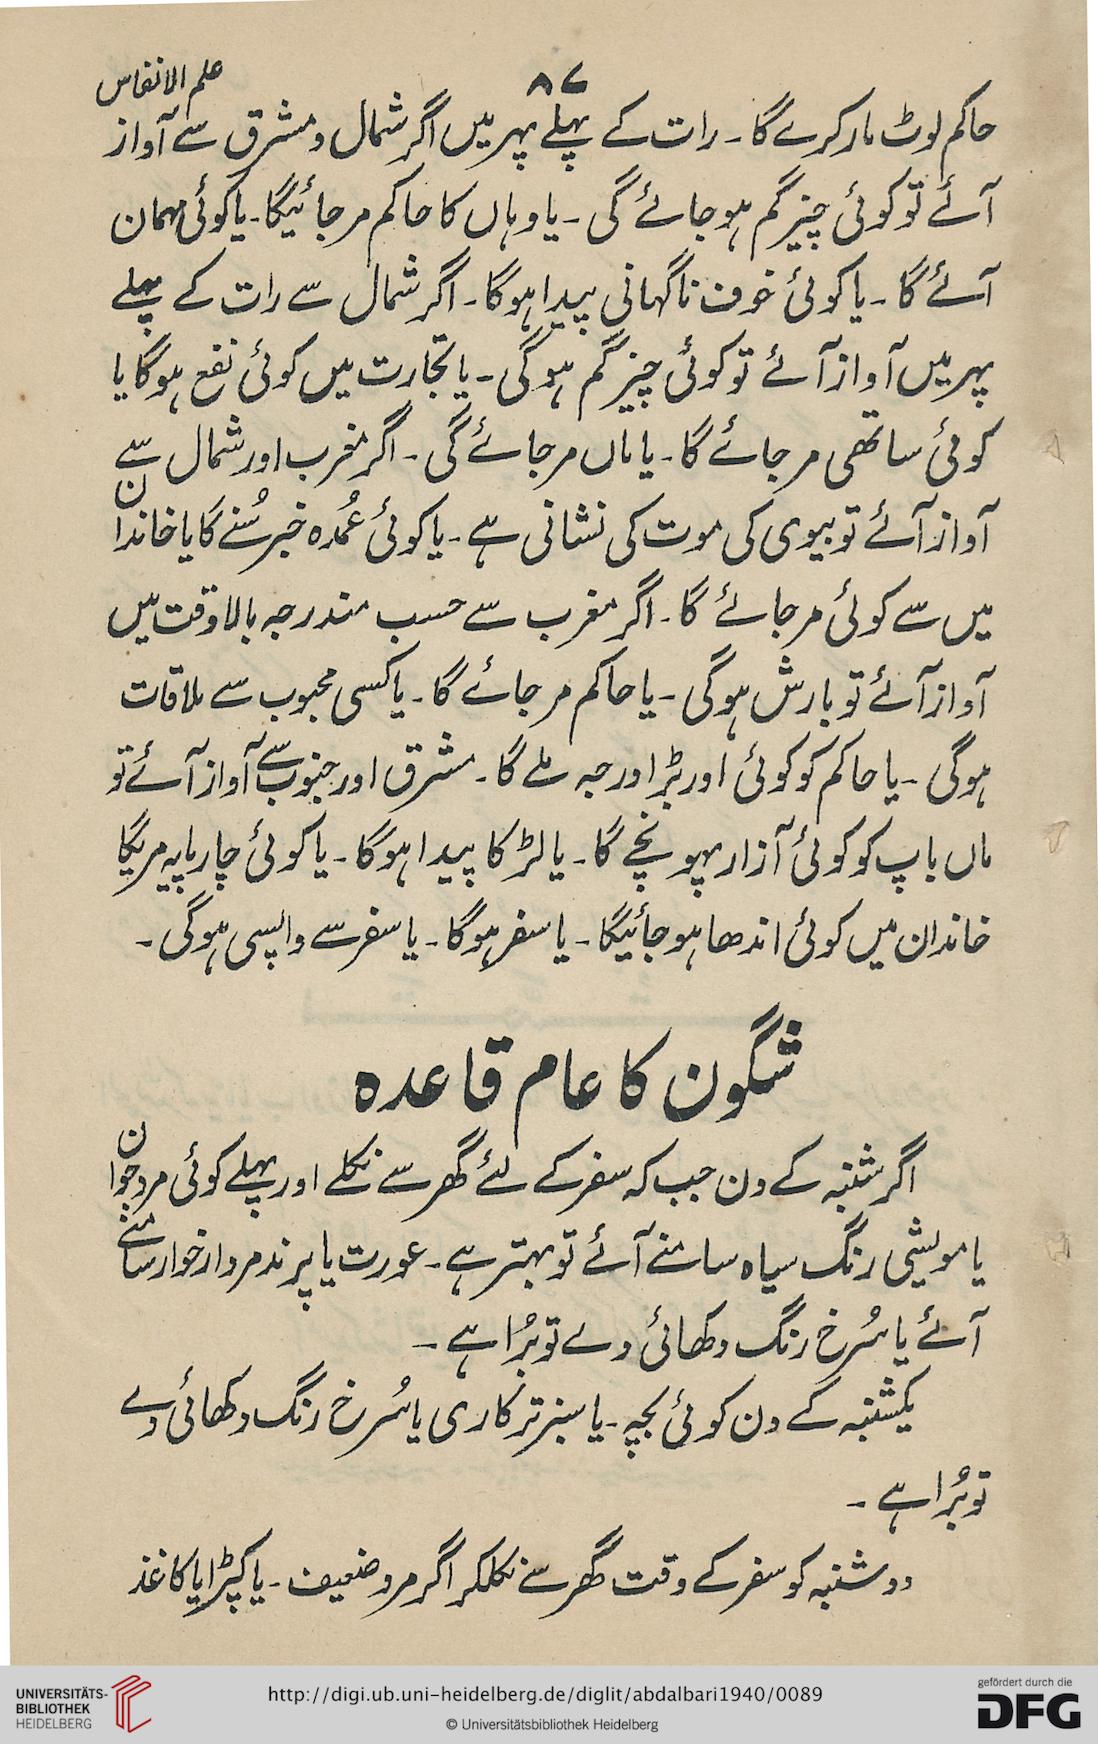 ۸۷
علم الانفاس
حاکم لوٹ مار کرے گا۔ رات کے پہلے پہر میں اگر شمال و مشرق سے آواز
آئے تو کوئی چیز گم ہو جائے گی ۔ یا وہاں کا حاکم مر جائیگا۔ یا کوئی مہمان
آئے گا ۔ یا کوئی خوف ناگہانی پیدا ہوگا۔ اگر شمال سے رات کے پہلے
پہر میں آواز آئے تو کوئی چیز گم ہوگی۔ یا تجارت میں کوئی نفع ہوگا یا
کوئی ساتھی مر جائے گا ۔ یا ماں مر جائے گی ۔ اگر مغرب اور شمال سے
آواز آئے تو بیوی کی موت کی نشانی ہے ۔ یا کوئی عُمدہ خبر سُنے گا یا خاندان
میں سے کوئی مر جائے گا ۔ اگر مغرب سے حسب مندرجہ بالا وقت میں
آواز آئے تو بارش ہوگی ۔ یا حاکم مر جائے گا ۔ یا کسی محبوب سے ملاقات
ہوگی ۔ یا حاکم کو کوئی اور بڑا درجہ ملے گا ۔ مشرق اور جنوب سے آواز آئے تو
ماں باپ کو کوئی آزار پہونچے گا ۔ یا لڑکا پیدا ہوگا ۔ یا کوئی چارپایہ مریگا
خاندان میں کوئی اندھا ہو جائیگا ۔ یا سفر ہوگا ۔ یا سفر سے واپسی ہوگی ۔
شگون کا عام قاعدہ
اگر شنبہ کے دن جب کہ سفر کے لئے گھر سے نکلے اور پہلے کوئی مرد جوان
یا مویشی رنگ سیاہ سامنے آئے تو بہتر ہے ۔ عورت یا پرند مردار خوار سامنے
آئے یا سُرخ رنگ دکھائی دے تو بُرا ہے ۔
یکشنبہ کے دن کوئی بچہ ۔ یا سبز ترکاری یا سُرخ رنگ دکھائی دے
تو بُرا ہے ۔
دوشنبہ کو سفر کے وقت گھر سے نکلکر اگر مرد ضعیف ۔ یا کپڑا یا کاغذ
UNIVERSITÄTS-
BIBLIOTHEK
HEIDELBERG
http://digi.ub.uni-heidelberg.de/diglit/abdalbari1940/0089
© Universitätsbibliothek Heidelberg
gefördert durch die
DFG